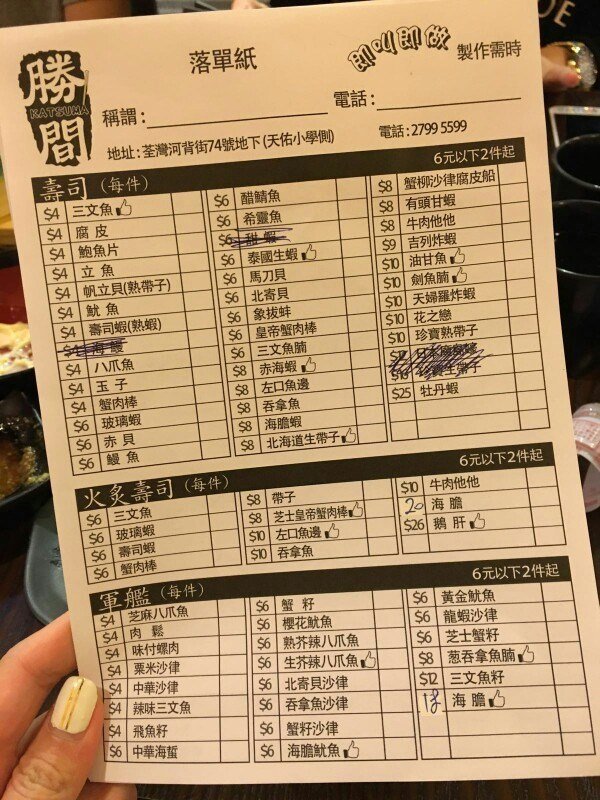 勝間
KATSUMA
落單紙
即叫即做 製作需時
稱謂:
電話:
地址:荃灣河背街74號地下(天佑小學側)
電話:2799 5599
壽司(每件) 6元以下2件起
$4 三文魚
$4 腐皮
$4 鮑魚片
$4 立魚
$4 帆立貝(熟帶子)
$4 魷魚
$4 壽司蝦(熟蝦)
$4 海鰻
$4 八爪魚
$4 玉子
$4 蟹肉棒
$6 玻璃蝦
$6 赤貝
$6 鰻魚
$6 醋鯖魚
$6 希靈魚
$6 甜蝦
$6 泰國生蝦
$6 馬刀貝
$6 北寄貝
$6 象拔蚌
$6 皇帝蟹肉棒
$6 三文魚腩
$8 赤海蝦
$8 左口魚邊
$8 吞拿魚
$8 海膽蝦
$8 北海道生帶子
$8 蟹柳沙律腐皮船
$8 有頭甘蝦
$8 牛肉他他
$9 吉列炸蝦
$10 油甘魚
$10 劍魚腩
$10 天婦羅炸蝦
$10 花之戀
$10 珍寶熟帶子
珍寶生帶子
$25 牡丹蝦
火炙壽司(每件) 6元以下2件起
$6 三文魚
$6 玻璃蝦
$6 壽司蝦
$6 蟹肉棒
$8 帶子
$8 芝士皇帝蟹肉棒
$10 左口魚邊
$10 吞拿魚
$10 牛肉他他
20 海膽
$26 鵝肝
軍艦(每件) 6元以下2件起
$4 芝麻八爪魚
$4 肉鬆
$4 味付螺肉
$4 粟米沙律
$4 中華沙律
$4 辣味三文魚
$4 飛魚籽
$6 中華海蜇
$6 蟹籽
$6 櫻花魷魚
$6 熟芥辣八爪魚
$6 生芥辣八爪魚
$6 北寄貝沙律
$6 吞拿魚沙律
$6 蟹籽沙律
$6 海膽魷魚
$6 黃金魷魚
$6 龍蝦沙律
$6 芝士蟹籽
$8 葱吞拿魚腩
$12 三文魚籽
海膽